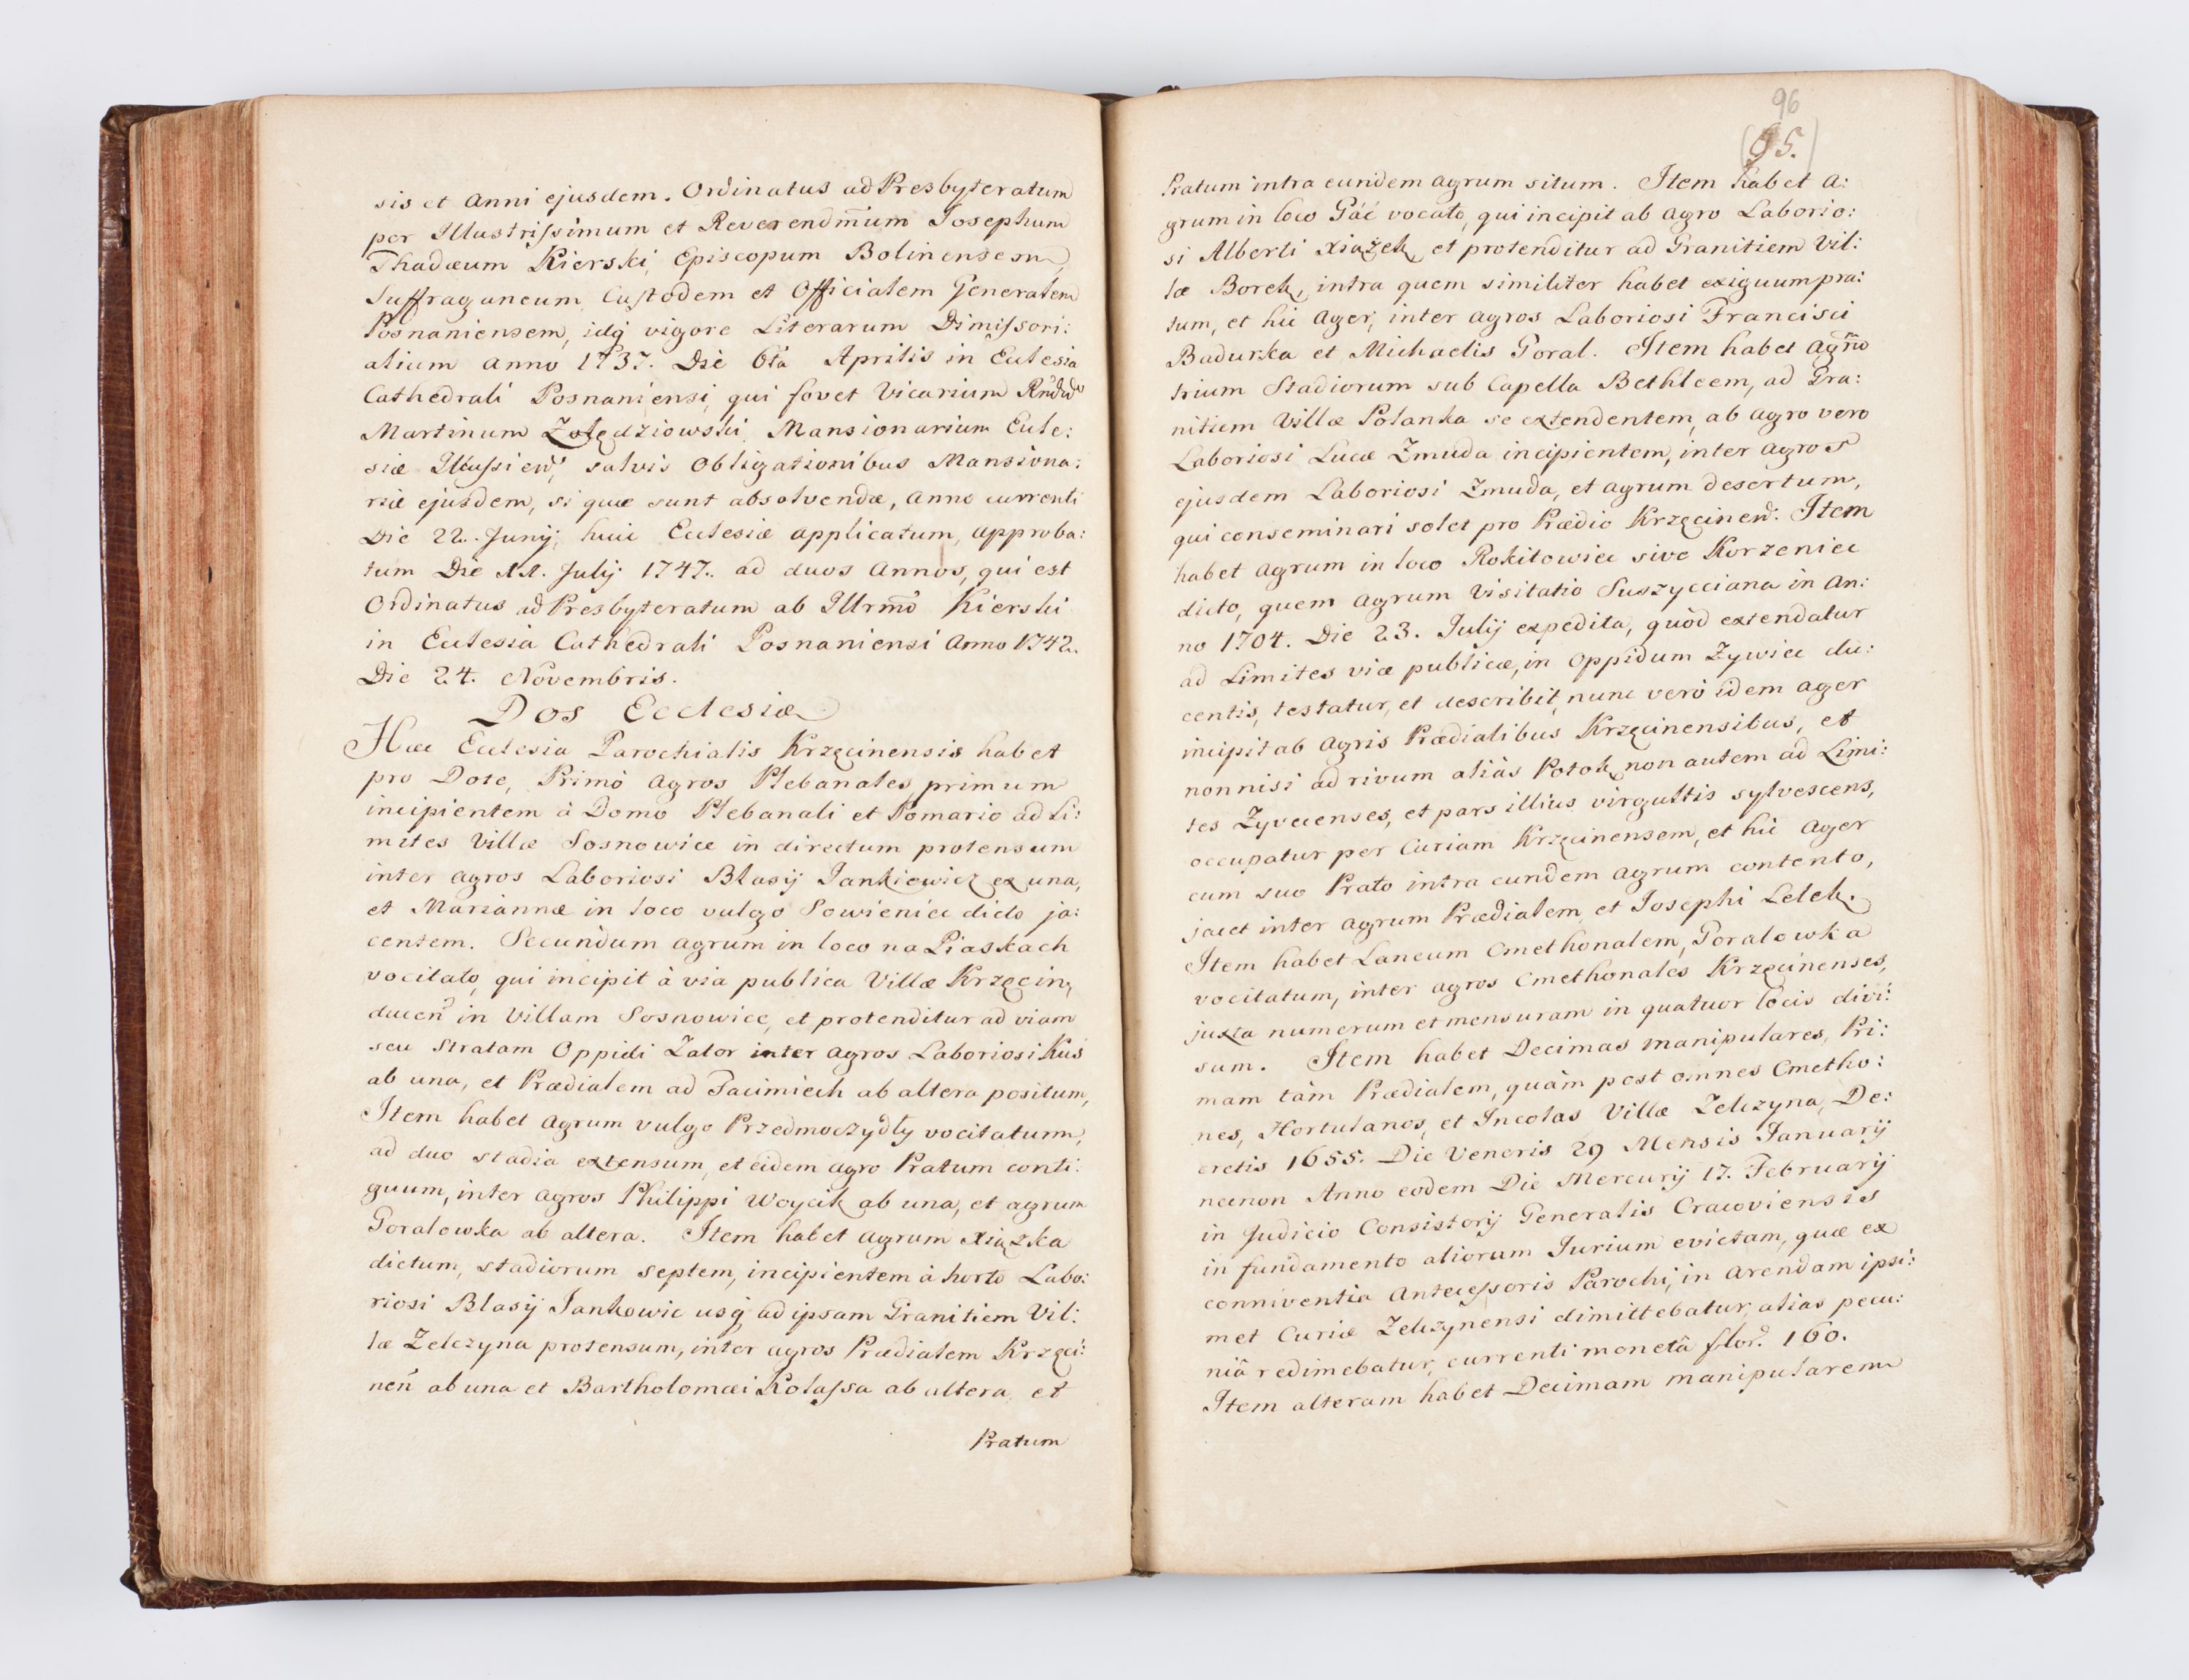 sis et Anni ejusdem. Ordinatus ad Presbyteratum
per Illustrissimum et Reverendm̄ium Josephum
Thadæum Kierski, Episcopum Bolinensem,
Suffraganeum Custodem et Officialem Generalem
Posnaniensem, idq; vigore Literarum Dimissori:
alium Anno 1737. Die 6ta Aprilis in Eclesia
Cathedrali Posnaniensi, qui fovet Vicarium
Martinum Zołędziowski, Mansionarium Ecle:
siæ salvis Obligationibus Mansiona:
riæ ejusdem, si quæ sunt absolvendæ, Anno currenti
Die 22. Junij, huic Ecclesiæ applicatum, approba:
tum Die XX. Julij 1747. ad duos Annos, qui est
Ordinatus ad Presbyteratum ab Illrm̄o Kierski
in Eclesia Cathedrali Posnaniensi Anno 1742.
Die 24. Novembris.
Dos Ecclesiæ
Hæc Eclesia Parochialis Krzęcinensis habet
pro Dote, Primò Agros Plebanales, primum
incipientem à Domo Plebanali et Pomario ad Li:
mites Villæ Sosnowice in directum protensum
inter agros Laboriosi Blasij Jankiewicz ex una,
et Mariannæ in loco vulgò Sowieniec dicto ja:
centem. Secundum agrum in loco na Piaskach
vocitato, qui incipit à via publica Villæ Krzęcin,
ducen̄ in Villam Sosnowice, et protenditur ad viam
seu Stratam Oppidi Zator inter agros Laboriosi Kuś
ab una, et Prædialem ad Facimiech ab altera positum,
Item habet Agrum vulgo Przedmoczydły vocitatum,
ad duo stadia extensum, et eidem agro Pratum conti:
guum, inter agros Philippi Woycik ab una, et agrum
Goralowka ab altera. Item habet agrum Xiązka
dictum, stadiorum septem, incipientem à horto Labo:
riosi Blasij Jankowic usq; ad ipsam Granitiem Vil:
læ Zelczyna protensum, inter agros Prædialem Krzęci:
nen̄ ab una et Bartholomæi Kolassa ab altera, et
Pratum
96
(95.)
Pratum intra eundem agrum situm. Item habet A:
grum in loco Gáć vocato, qui incipit ab Agro Laborio:
si Alberti Xiążek, et protenditur ad Granitiem Vil:
læ Borek, intra quem similiter habet exiguum pra:
tum, et hic Ager, inter agros Laboriosi Francisci
Badurka et Michaelis Goral. Item habet
trium Stadiorum sub Capella Bethleem, ad Gra:
nitiem Villæ Polanka se extendentem, ab agro vero
Laboriosi Lucæ Zmuda incipientem, inter agros
ejusdem Laboriosi Zmuda, et agrum desertum,
qui conseminari solet pro Prædio Krzęcinen̄. Item
habet agrum in loco Rokitowiec sive Korzeniec
dicto, quem agrum Visitatio Suszycciana in An:
no 1704. Die 23. Julij expedita, quòd extendatur
ad Limites viæ publicæ, in Oppidum Zywiec du:
centis, testatur, et describit, nunc verò idem ager
incipit ab agris Prædialibus Krzęcinensibus, et
nonnisi ad rivum aliàs Potok, non autem ad Limi:
tes Zyvecenses, et pars illius virgultis sylvescens,
occupatur per Curiam Krzęcinensem, et hic Ager
cum suo Prato intra eundem agrum contento,
jacet inter agrum Prædialem, et Josephi Lelek.
Item habet Laneum Cmethonalem, Goralowka
vocitatum, inter agros Cmethonales Krzęcinenses,
juxta numerum et mensuram in quatuor locis divi:
sum. Item habet Decimas manipulares, Pri:
mam tàm Prædialem, quàm post omnes Cmetho:
nes, Hortulanos, et Incolas Villæ Zelczyna, De:
cretis 1655. Die Veneris 29 Mensis Januarij
necnon Anno eodem Die Mercurij 17. Februarij
in Judicio Consistorij Generalis Cracoviensis
in fundamento aliorum Jurium evictam, quæ ex
conniventia Antecessoris Parochi, in arendam ipsi:
met Curiæ Zelczynensi dimittebatur, alias pecu:
niâ redimebatur, currenti monetâ flor. 160.
Item alteram habet Decimam manipularem